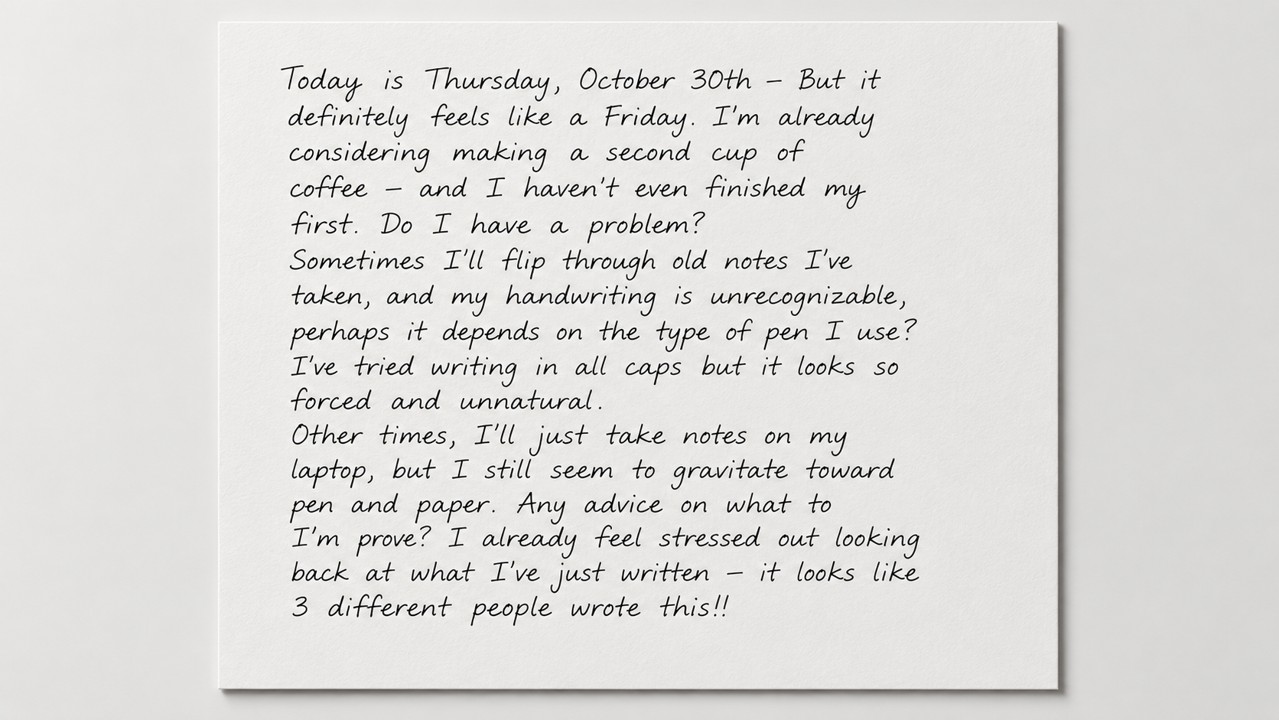 Today is Thursday, October 30th – But it
definitely feels like a Friday. I'm already
considering making a second cup of
coffee – and I haven't even finished my
first. Do I have a problem?
Sometimes I'll flip through old notes I've
taken, and my handwriting is unrecognizable,
perhaps it depends on the type of pen I use?
I've tried writing in all caps but it looks so
forced and unnatural.
Other times, I'll just take notes on my
laptop, but I still seem to gravitate toward
pen and paper. Any advice on what to
I'm prove? I already feel stressed out looking
back at what I've just written – it looks like
3 different people wrote this!!